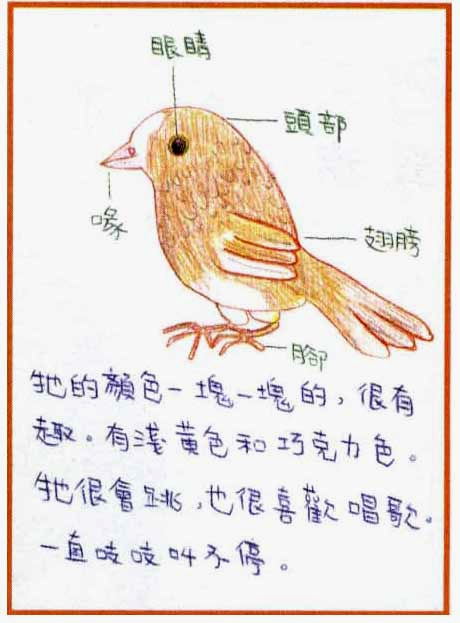 眼睛
頭部
喙
翅膀
腳
牠的顏色一塊一塊的，很有
趣。有淺黃色和巧克力色。
牠很會跳，也很喜歡唱歌。
一直吱吱叫不停。